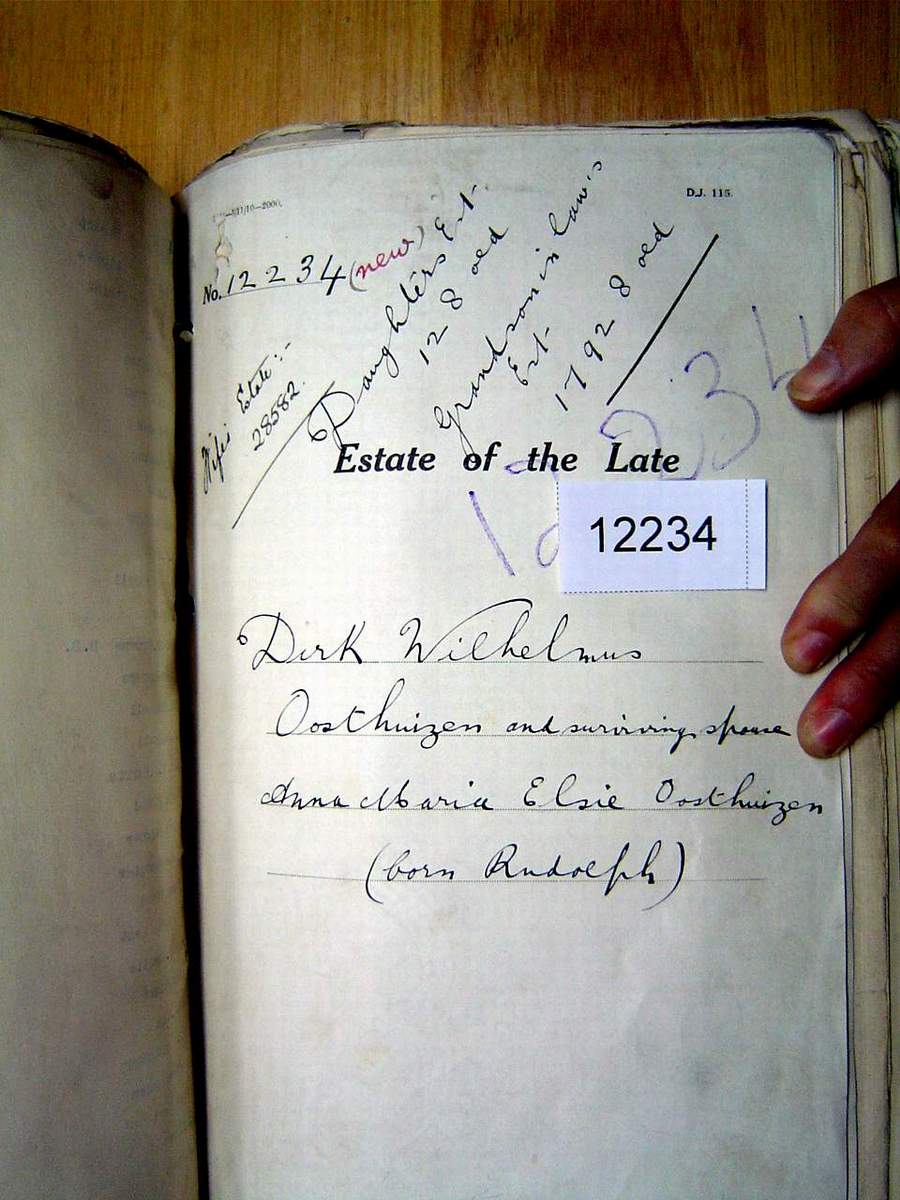 D.J. 115.
No. 12234 (new)
Wife's Estate:-
28582.
Daughters Est.
128 oed
Grandson in law's
Est.
17928 oed
12234
Estate of the Late
12234
Dirk Wilhelmus
Oosthuizen and surviving spouse
Anna Maria Elsie Oosthuizen
(born Rudolph)